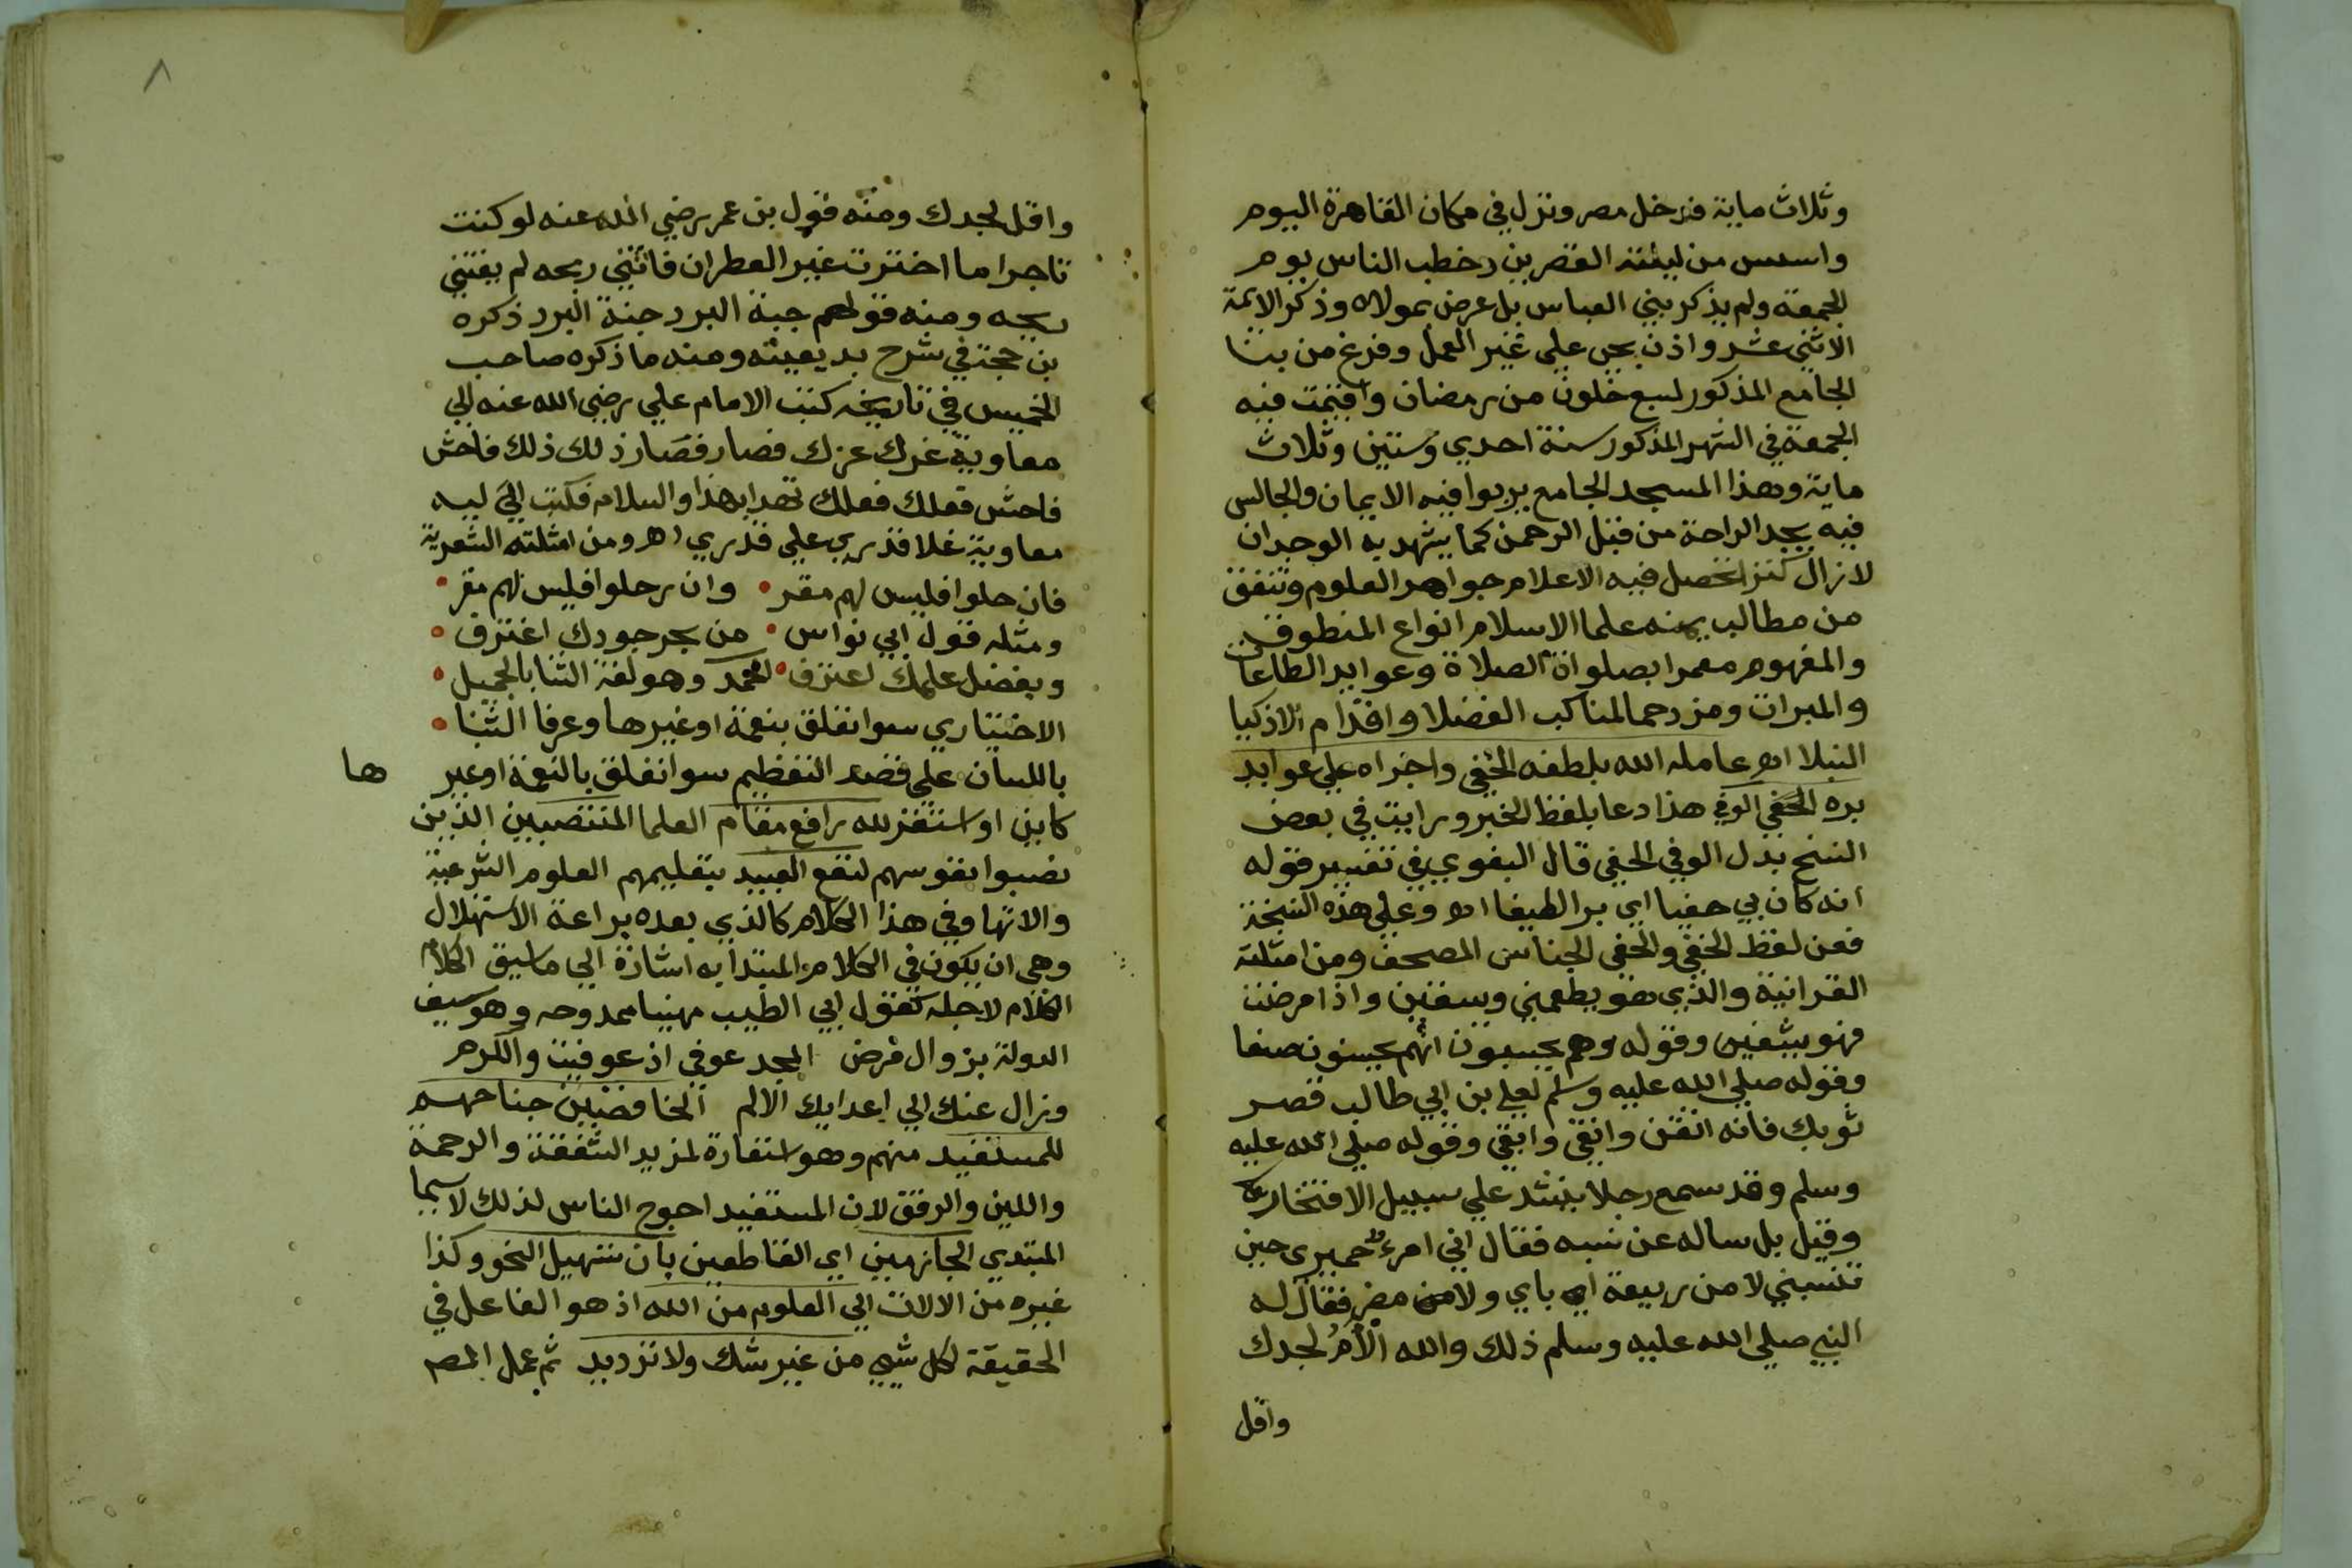 وثلاث ماية فدخل مصر ونزل في مكان القاهرة اليوم
واسس من ليلته القصرين وخطب الناس يوم
الجمعة ولم يذكر بني العباس بل عرض بمولاه وذكر الايمة
الاثني عشر واذن بحي علي خير العمل وفرغ من بنا
الجامع المذكور لسبع خلون من رمضان واقيمت فيه
الجمعة في الشهر المذكور سنة احدي وستين وثلاث
ماية وهذا المسجد الجامع يربوا فيه الايمان والجالس
فيه يجد الراحة من قبل الرحمن كما يشهد به الوجدان
لازال كنزا تحصل فيه الاعلام جواهر العلوم وتنفق
من مطالب علما الاسلام انواع المنطوق
والمفهوم معمرا بصلوات الصلاة وعوايد الطاعات
والمبرات ومزدحما لمناكب الفضلا واقدام الاذكيا
النبلا اه عامله الله بلطفه الخفي واجراه علي عوايد
بره الحفي الوفي هذا دعا بلفظ الخبر ورايت في بعض
النسخ بدل الوفي الحفي قال البغوي في تفسير قوله
انه كان بي حفيا اي برا لطيفا اه وعلي هذه النسخة
فمن لفظ الخفي والحفي الجناس المصحف ومن امثلته
القرانية والذي هو يطعمني ويسقين واذا مرضت
فهو يشفين وقوله وهم يحسبون انهم يحسنون صنعا
وقوله صلي الله عليه وسلم لعلي بن ابي طالب قصر
ثوبك فانه اتقي وانقي وابقي وقوله صلي الله عليه
وسلم وقد سمع رجلا ينشد علي سبيل الافتخار
وقيل بل ساله عن نسبه فقال اني امرء حميري حين
تنسبني لا من ربيعة اباي ولا من مضر فقال له
النبي صلي الله عليه وسلم ذلك والله الأم لجدك
واقل
٨
واقل لجدك ومنه قول بن عمر رضي الله عنه لو كنت
تاجرا ما اخترت غير العطر ان فاتني ربحه لم يفتني
ريحه ومنه قولهم جبة البرد جنة البرد ذكره
بن حجة في شرح بديعيته ومنه ما ذكره صاحب
الخميس في تاريخه كتب الامام علي رضي الله عنه الي
معاوية غرك عزك فصار قصار ذلك ذلك فاخش
فاحش فعلك فعلك تهدا بهذا والسلام فكتب اليه
معاوية غلا قدري علي قدري اه ومن امثلته الشعرية
فان حلوا فليس لهم مقر • وان رحلوا فليس لهم مفر •
ومثله قول ابي نواس • من بحر جودك اغترف •
وبفضل علمك اعترف • الحمد وهو لغة الثنا بالجميل •
الاختياري سوا تعلق بنعمة او غيرها وعرفا الثنا •
باللسان علي قصد التعظيم سوا تعلق بالنعمة او غير ها
كاين او استقر لله رافع مقام العلما المنتصبين الذين
نصبوا نفوسهم لنفع العبيد بتعليمهم العلوم الشرعية
والاتها وفي هذا الكلام كالذي بعده براعة الاستهلال
وهي ان يكون في الكلام المبتدا به اشارة الي ما سيق الكلام
الكلام لاجله كقول ابي الطيب مهنيا ممدوحه وهو سيف
الدولة بزوال مرض المجد عوفي اذ عوفيت والكرم
وزال عنك الي اعدايك الالم الخافضين جناحهم
للمستفيد منهم وهو استعارة لمزيد الشفقة والرحمة
واللين والرفق لان المستفيد احوج الناس لذلك لاسيما
المبتدي الجازمين اي القاطعين بان تسهيل النحو وكذا
غيره من الالات الي العلوم من الله اذ هو الفاعل في
الحقيقة لكل شيي من غير شك ولا ترديد ثم عمل المص